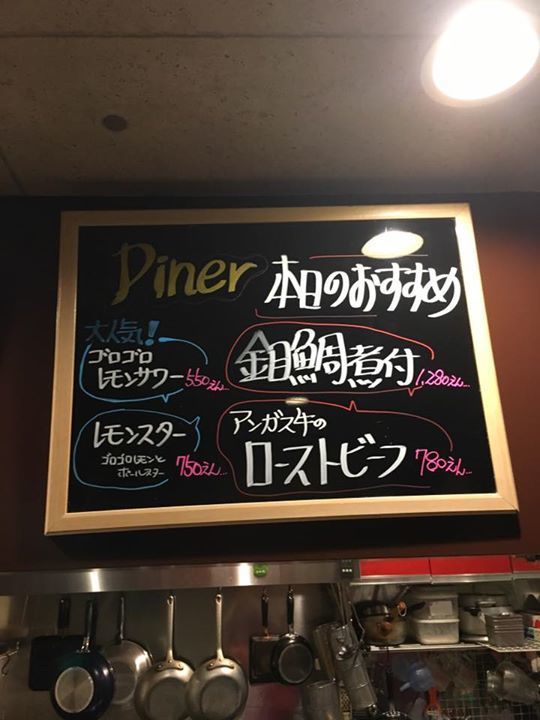 Diner
本日のおすすめ
大人気!
ゴロゴロ
レモンサワー 550えん…
金目鯛煮付 1,280えん…
レモンスター
ゴロゴロレモンと
ポールスター 750えん…
アンガス牛の
ローストビーフ 780えん…